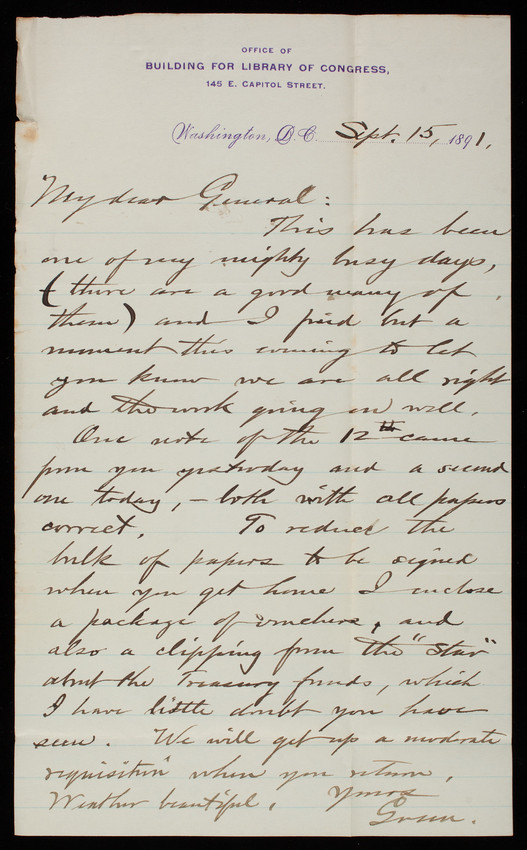 OFFICE OF
BUILDING FOR LIBRARY OF CONGRESS,
145 E. CAPITOL STREET.
Washington, D.C. Sept. 15, 1891,
My dear General:
This has been
one of my mighty busy days,
(there are a good many of
them) and I find but a
moment this evening to let
you know we are all right
and the work going on well.
One note of the 12th came
from you yesterday and a second
one today, – both with all papers
correct. To reduce the
bulk of papers to be signed
when you get home I enclose
a package of vouchers, and
also a clipping from the "Star"
about the Treasury funds, which
I have little doubt you have
seen. We will get up a moderate
requisition when you return.
Weather beautiful. Yours
Green.